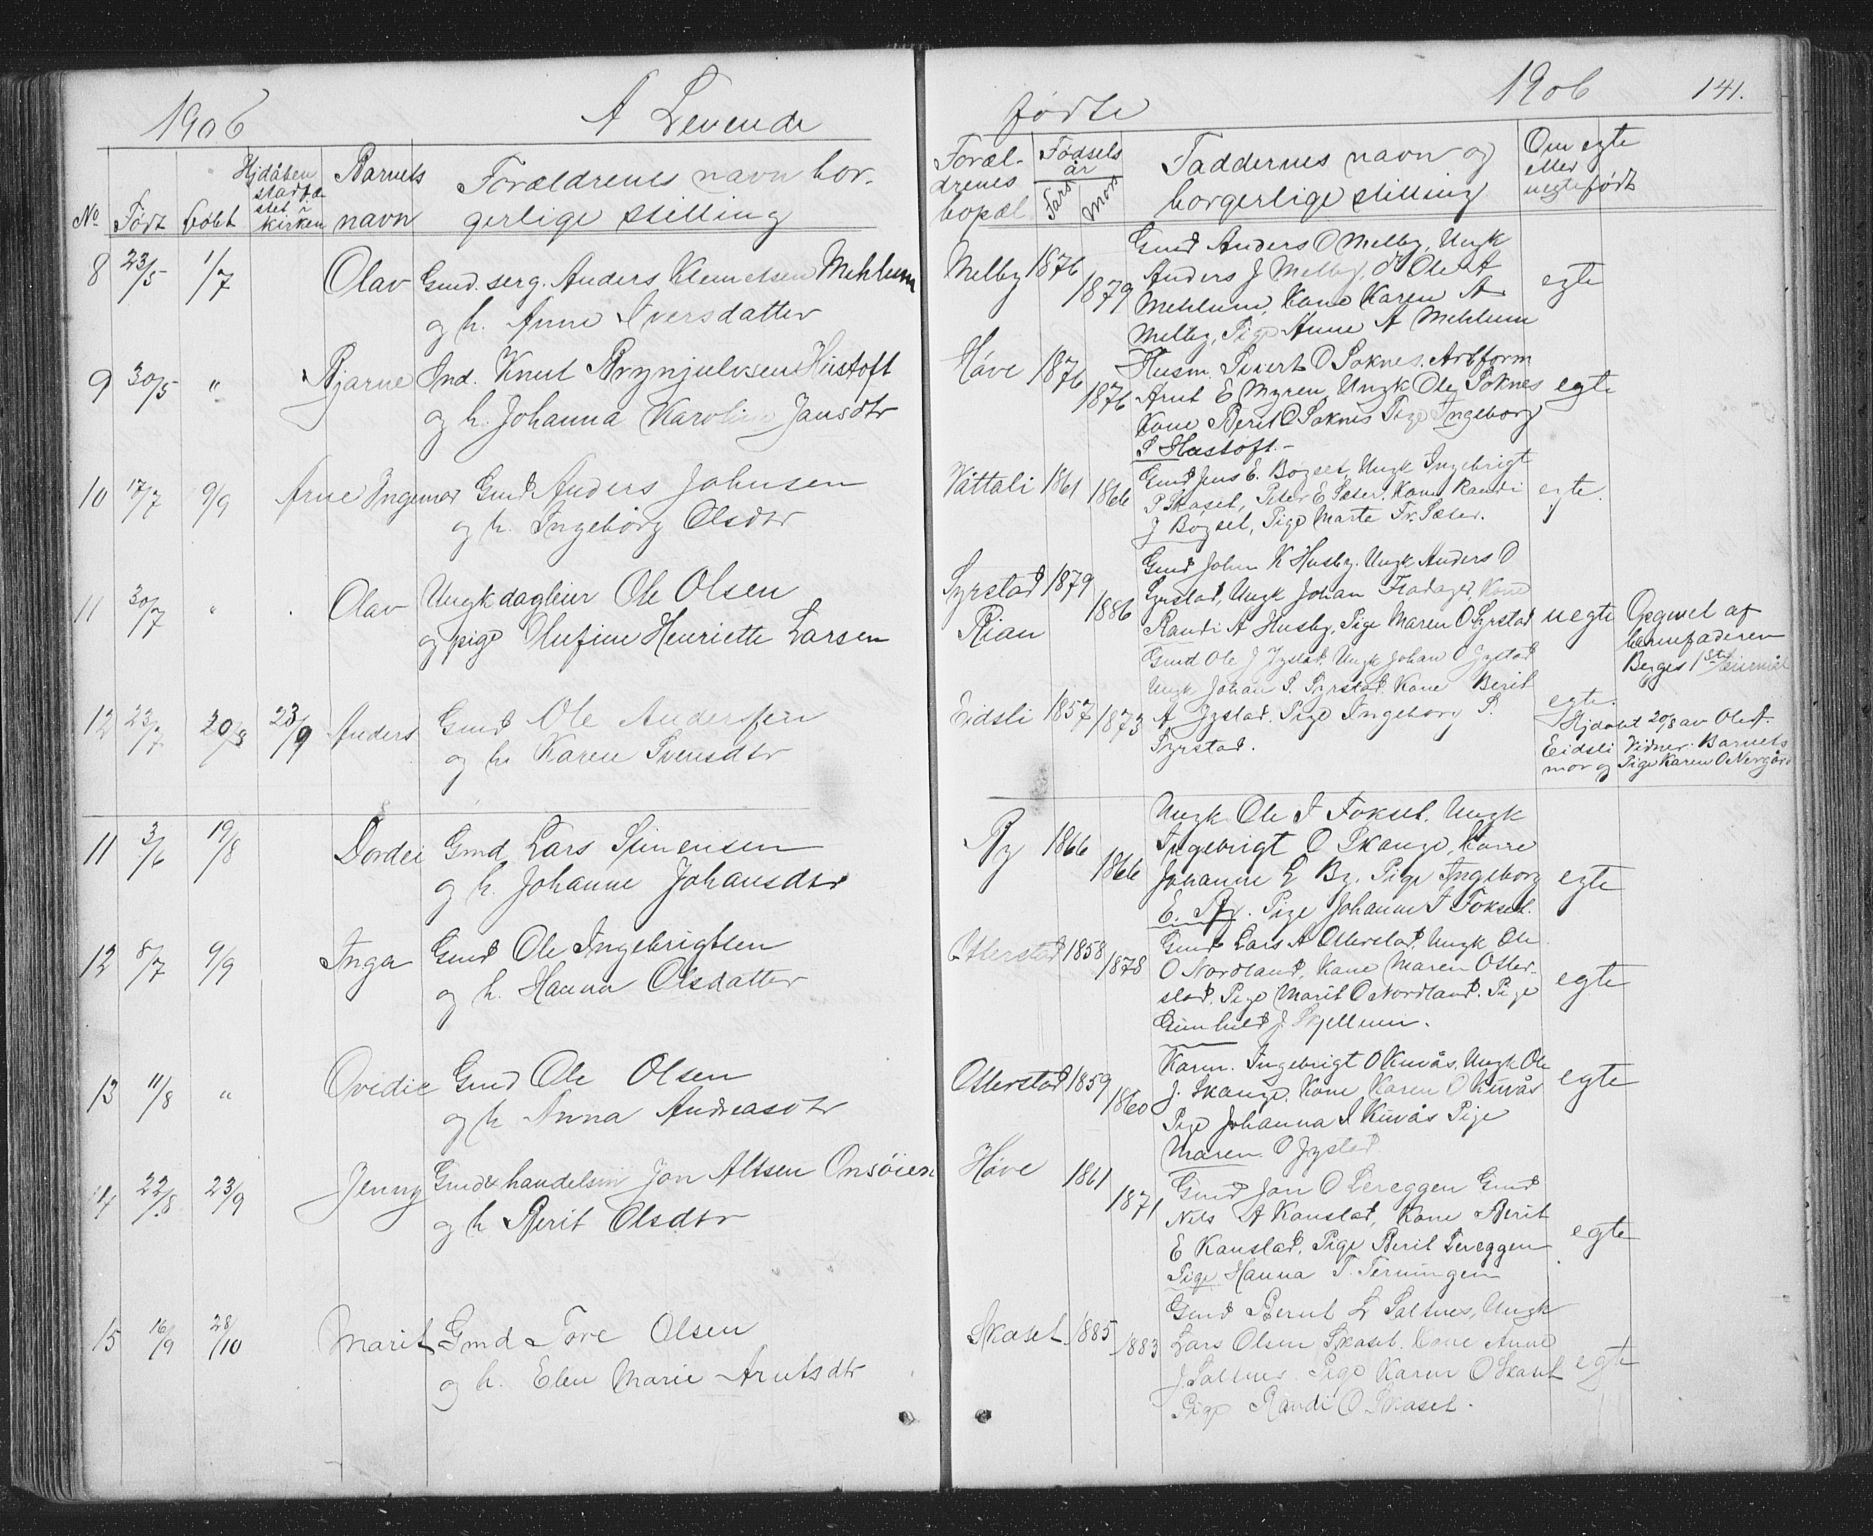 1906 A Levende
№ Født Døbt Hjdåben stadfæstet i kirken Barnets navn Forældrenes navn borgerlige stilling
8 23/5 1/7 Olav Gmd. serg. Anders Clemetsen Mehlum
og h. Anne Iversdatter
9 30/5 " Bjarne Ind. Knut Brynjulvsen Hustoft
og h. Johanna Karoline Jansdtr
10 17/7 9/9 Arne Ingemar Gmd Anders Johnsen
og h. Ingebørg Olsdtr
11 30/7 " Olav Ungk dagleier Ole Olsen
og pige Olufine Henriette Larsen
12 23/7 20/8 23/9 Anders Gmd Ole Andersen
og h. Karen Svensdtr
11 3/6 19/8 Dordei Gmd Lars Simensen
og h. Johanne Johansdtr
12 8/7 9/9 Inga Gmd Ole Ingebrigtsen
og h. Hanna Olsdatter
13 11/8 " Ovidie Gmd Ole Olsen
og h Anna Andreasdtr
14 22/8 23/9 Jenny Gmd & handelsm Jon Altsen Onsøien
og h Berit Olsdtr
15 16/9 28/10 Marit Gmd Tore Olsen
og h. Elen Marie Arntsdtr
fødte 1906 141.
Forældrenes bopæl Fødselsår Fars Mors Faddernes navn og borgerlige stilling Om egte eller uegte født
Melby 1876 1879 Gmd Anders O Melby, Ungk
Anders J Melby, do Ole A
Mehlum, Kone Karen A
Melby, Pige Anne A Mehlum
egte
Høve 1876 1876 Husm. Sivert O Soknes. Arbform
Arnt E Myren, Ungk Ole Soknes
Kone Berit O Soknes Pige Ingeborg
S Hustoft.-
egte
Våttali 1861 1866 Gmd Jens E. Bøgset, Ungk Ingebrigt
P Skaset, Peter E Sæter. Kone Randi
J Bøgset, Pige Marte Fr. Sæter.
egte.
Syrstad Rian 1879 1886 Gmd John K Husby. Ungk Anders O
Syrstad, Ungk Johan Fradager, Kone
Randi A Husby, Pige Maren O Syrstad
uegte
Opgivet af
barnefaderen
Begges 1ste leiermål
Eidsli 1857 1873 Gmd Ole J Jystad. Ungk Johan O Jystad
Ungk Johan S. Syrstad. Kone Berit
A Jystad. Pige Ingeborg S.
Syrstad.
egte.
Hjdøbt 20/8 av Ole A.
Eidsli Vidner. Barnets
mor og Pige Karen O Nergård
By 1866 1866 Ungk Ole I Fokset. Ungk
Ingebrigt O Skauge, Kone
Johanne E By. Pige Ingeborg
E. By. Pige Johanne I Fokset.
egte
Otterstad 1858 1878 Gmd Lars A Otterstad. Ungk Ole
O Nordland, Kone Maren Otter-
stad. Pige Marit O Nordland. Pige
Gunhild J. Skjellum.
egte
Otterstad 1859 1860 Karm. Ingebrigt O Kuvås, Ungk Ole
J. Skauge, Kone Karen O Kuvås
Pige Johanna I Kuvås Pige
Maren O Jystad.
egte
Høve 1861 1871 Gmd Jon O Lereggen Gmd
Nils A Kanstad, Kone Berit
E Kanstad. Pige Berit Lereggen
Pige Hanna T. Terningen
egte
Skaset 1885 1883 Gmd Bernt L Saltnes, Ungk
Lars Olsen Skaset. Kone Anne
J Saltnes. Pige Karen O Skaset
Pige Randi O Skaset.
egte